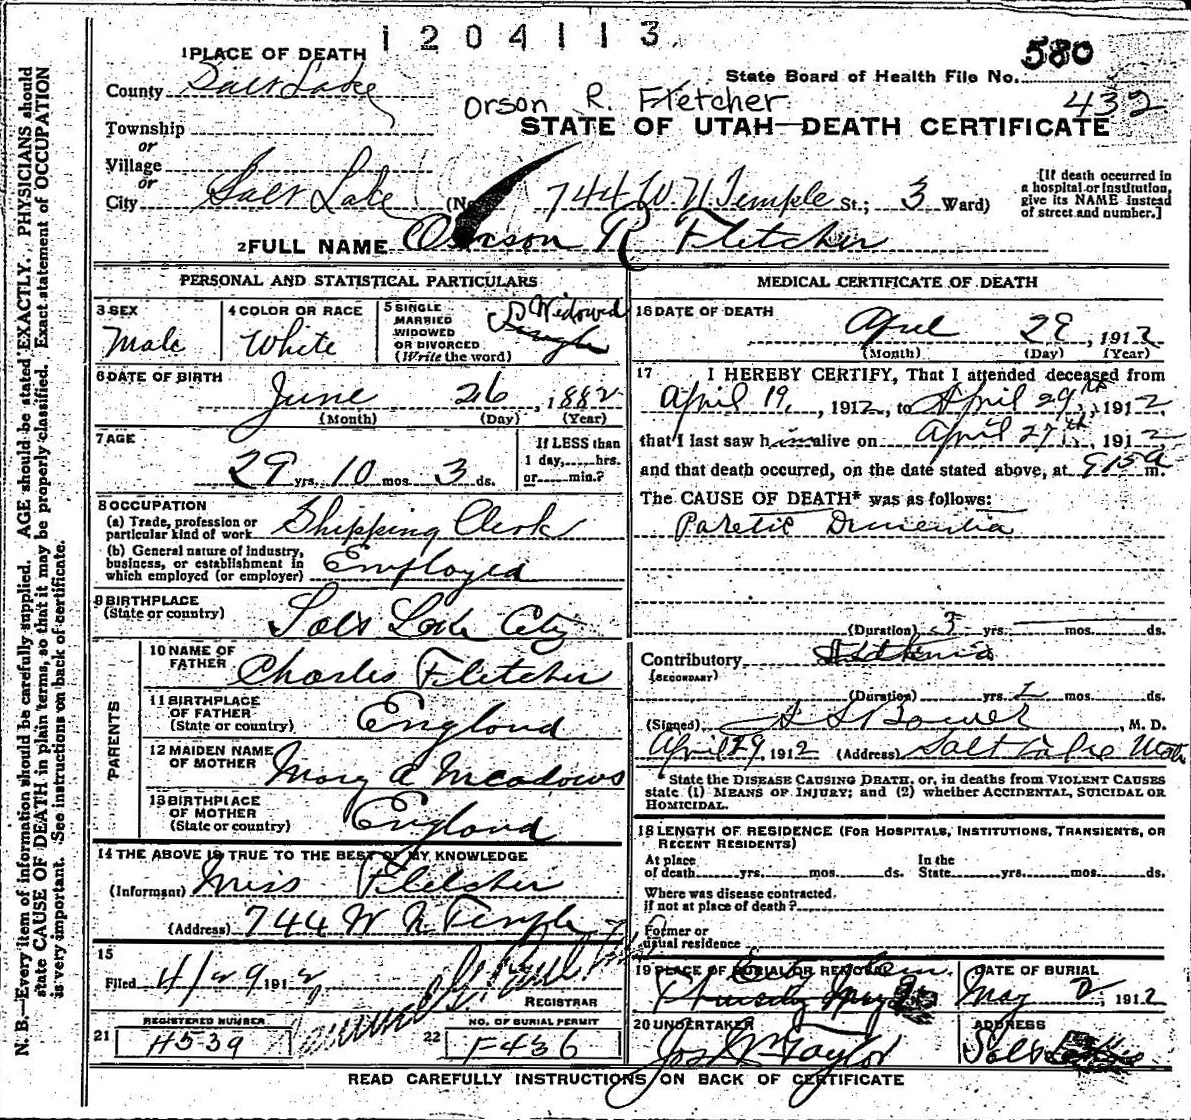 1204113
1 PLACE OF DEATH
County Salt Lake
State Board of Health File No. 580
Orson R. Fletcher 432
STATE OF UTAH—DEATH CERTIFICATE
Township
or
Village
or
City Salt Lake (No. 744 W N Temple St.; 3 Ward)
[If death occurred in a hospital or institution, give its NAME instead of street and number.]
2 FULL NAME Orson R Fletcher
PERSONAL AND STATISTICAL PARTICULARS
3 SEX
Male
4 COLOR OR RACE
White
5 SINGLE
MARRIED
WIDOWED
OR DIVORCED
(Write the word)
Widowed
Single
6 DATE OF BIRTH
June 26, 1882
(Month) (Day) (Year)
7 AGE
29 yrs. 10 mos. 3 ds.
If LESS than
1 day,......hrs.
or......min.?
8 OCCUPATION
(a) Trade, profession or
particular kind of work Shipping Clerk
(b) General nature of industry,
business, or establishment in
which employed (or employer) Employed
9 BIRTHPLACE
(State or country) Salt Lake City
PARENTS
10 NAME OF
FATHER Charles Fletcher
11 BIRTHPLACE
OF FATHER
(State or country) England
12 MAIDEN NAME
OF MOTHER Mary A Meadows
13 BIRTHPLACE
OF MOTHER
(State or country) England
14 THE ABOVE IS TRUE TO THE BEST OF MY KNOWLEDGE
(Informant) Miss Fletcher
(Address) 744 W N Temple
15
Filed 4/29 1912
REGISTRAR
21
REGISTERED NUMBER
H539
22
NO. OF BURIAL PERMIT
F436
MEDICAL CERTIFICATE OF DEATH
16 DATE OF DEATH
April 29, 1912
(Month) (Day) (Year)
17 I HEREBY CERTIFY, That I attended deceased from
April 19, 1912, to April 29th, 1912
that I last saw him alive on April 27th, 1912
and that death occurred, on the date stated above, at 915a m.
The CAUSE OF DEATH* was as follows:
Paretic Dementia
(Duration) 3 yrs. mos. ds.
Contributory Asthenia
(SECONDARY)
(Duration) yrs. 2 mos. ds.
(Signed) H S Bower, M. D.
April 29, 1912 (Address) Salt Lake Utah
State the DISEASE CAUSING DEATH, or, in deaths from VIOLENT CAUSES
state (1) MEANS OF INJURY; and (2) whether ACCIDENTAL, SUICIDAL OR
HOMICIDAL.
18 LENGTH OF RESIDENCE (FOR HOSPITALS, INSTITUTIONS, TRANSIENTS, OR
RECENT RESIDENTS)
At place
of death......yrs......mos......ds.
In the
State......yrs......mos......ds.
Where was disease contracted.
if not at place of death?
Former or
usual residence
19 PLACE OF BURIAL OR REMOVAL
DATE OF BURIAL
May 2, 1912
20 UNDERTAKER
Jos Wm Taylor
ADDRESS
Salt Lake
READ CAREFULLY INSTRUCTIONS ON BACK OF CERTIFICATE
N. B.—Every item of information should be carefully supplied. AGE should be stated EXACTLY. PHYSICIANS should
state CAUSE OF DEATH in plain terms, so that it may be properly classified. Exact statement of OCCUPATION
is very important. See instructions on back of certificate.